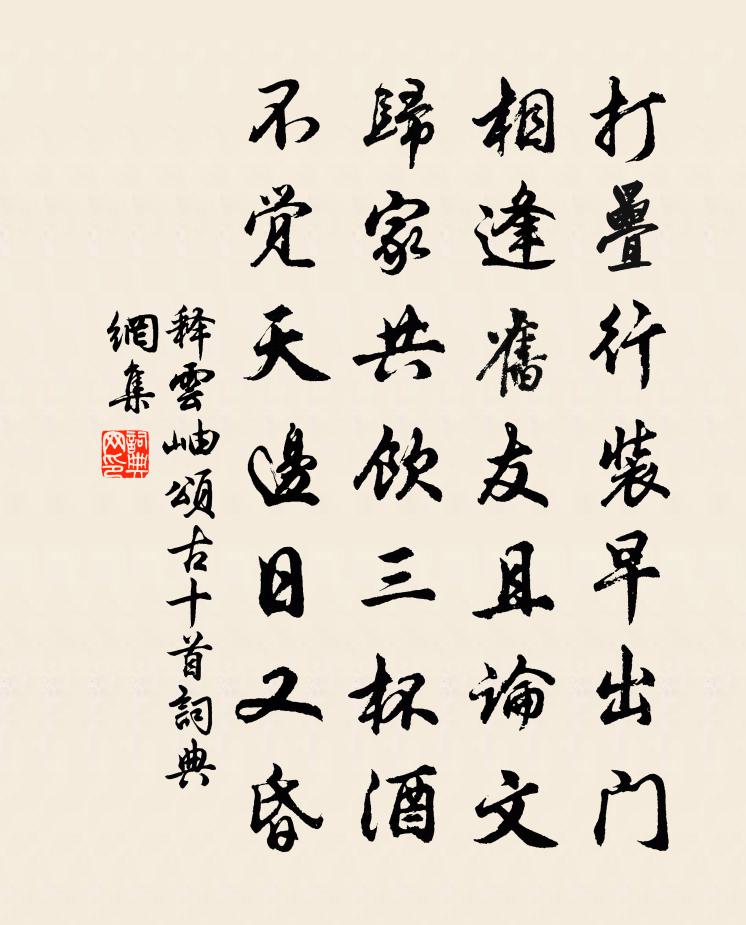 打疊行裝早出门
相逢舊友且论文
歸家共飲三杯酒
不觉天邊日又昏
释雲岫頌古十首詞典
網集
詞典
网印